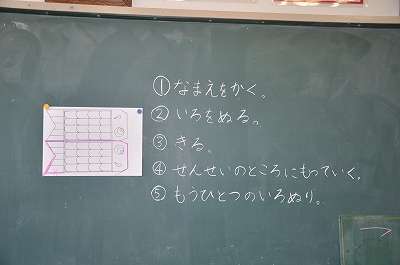 ①なまえをかく。
②いろをぬる。
③きる。
④せんせいのところにもっていく。
⑤もうひとつのいろぬり。